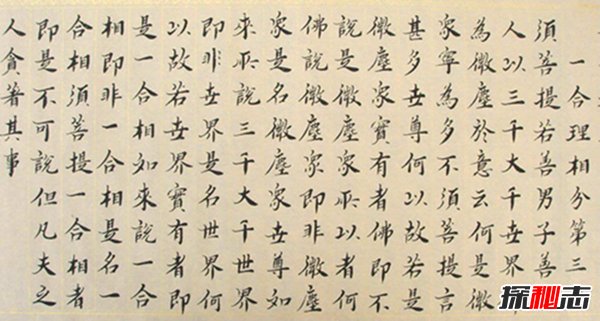 一合理相分第三
須菩提若善男子善
人以三千大千世界
為微塵於意云何是微
眾寧為多不須菩提言
甚多世尊何以故若是
微塵眾實有者佛即不
說是微塵眾所以者何
佛說微塵眾即非微塵
眾是名微塵眾世尊如
來所說三千大千世界
即非世界是名世界何
以故若世界實有者即
是一合相如來說一合
相即非一合相是名一
合相須菩提一合相者
即是不可說但凡夫之
人貪著其事
探秘志